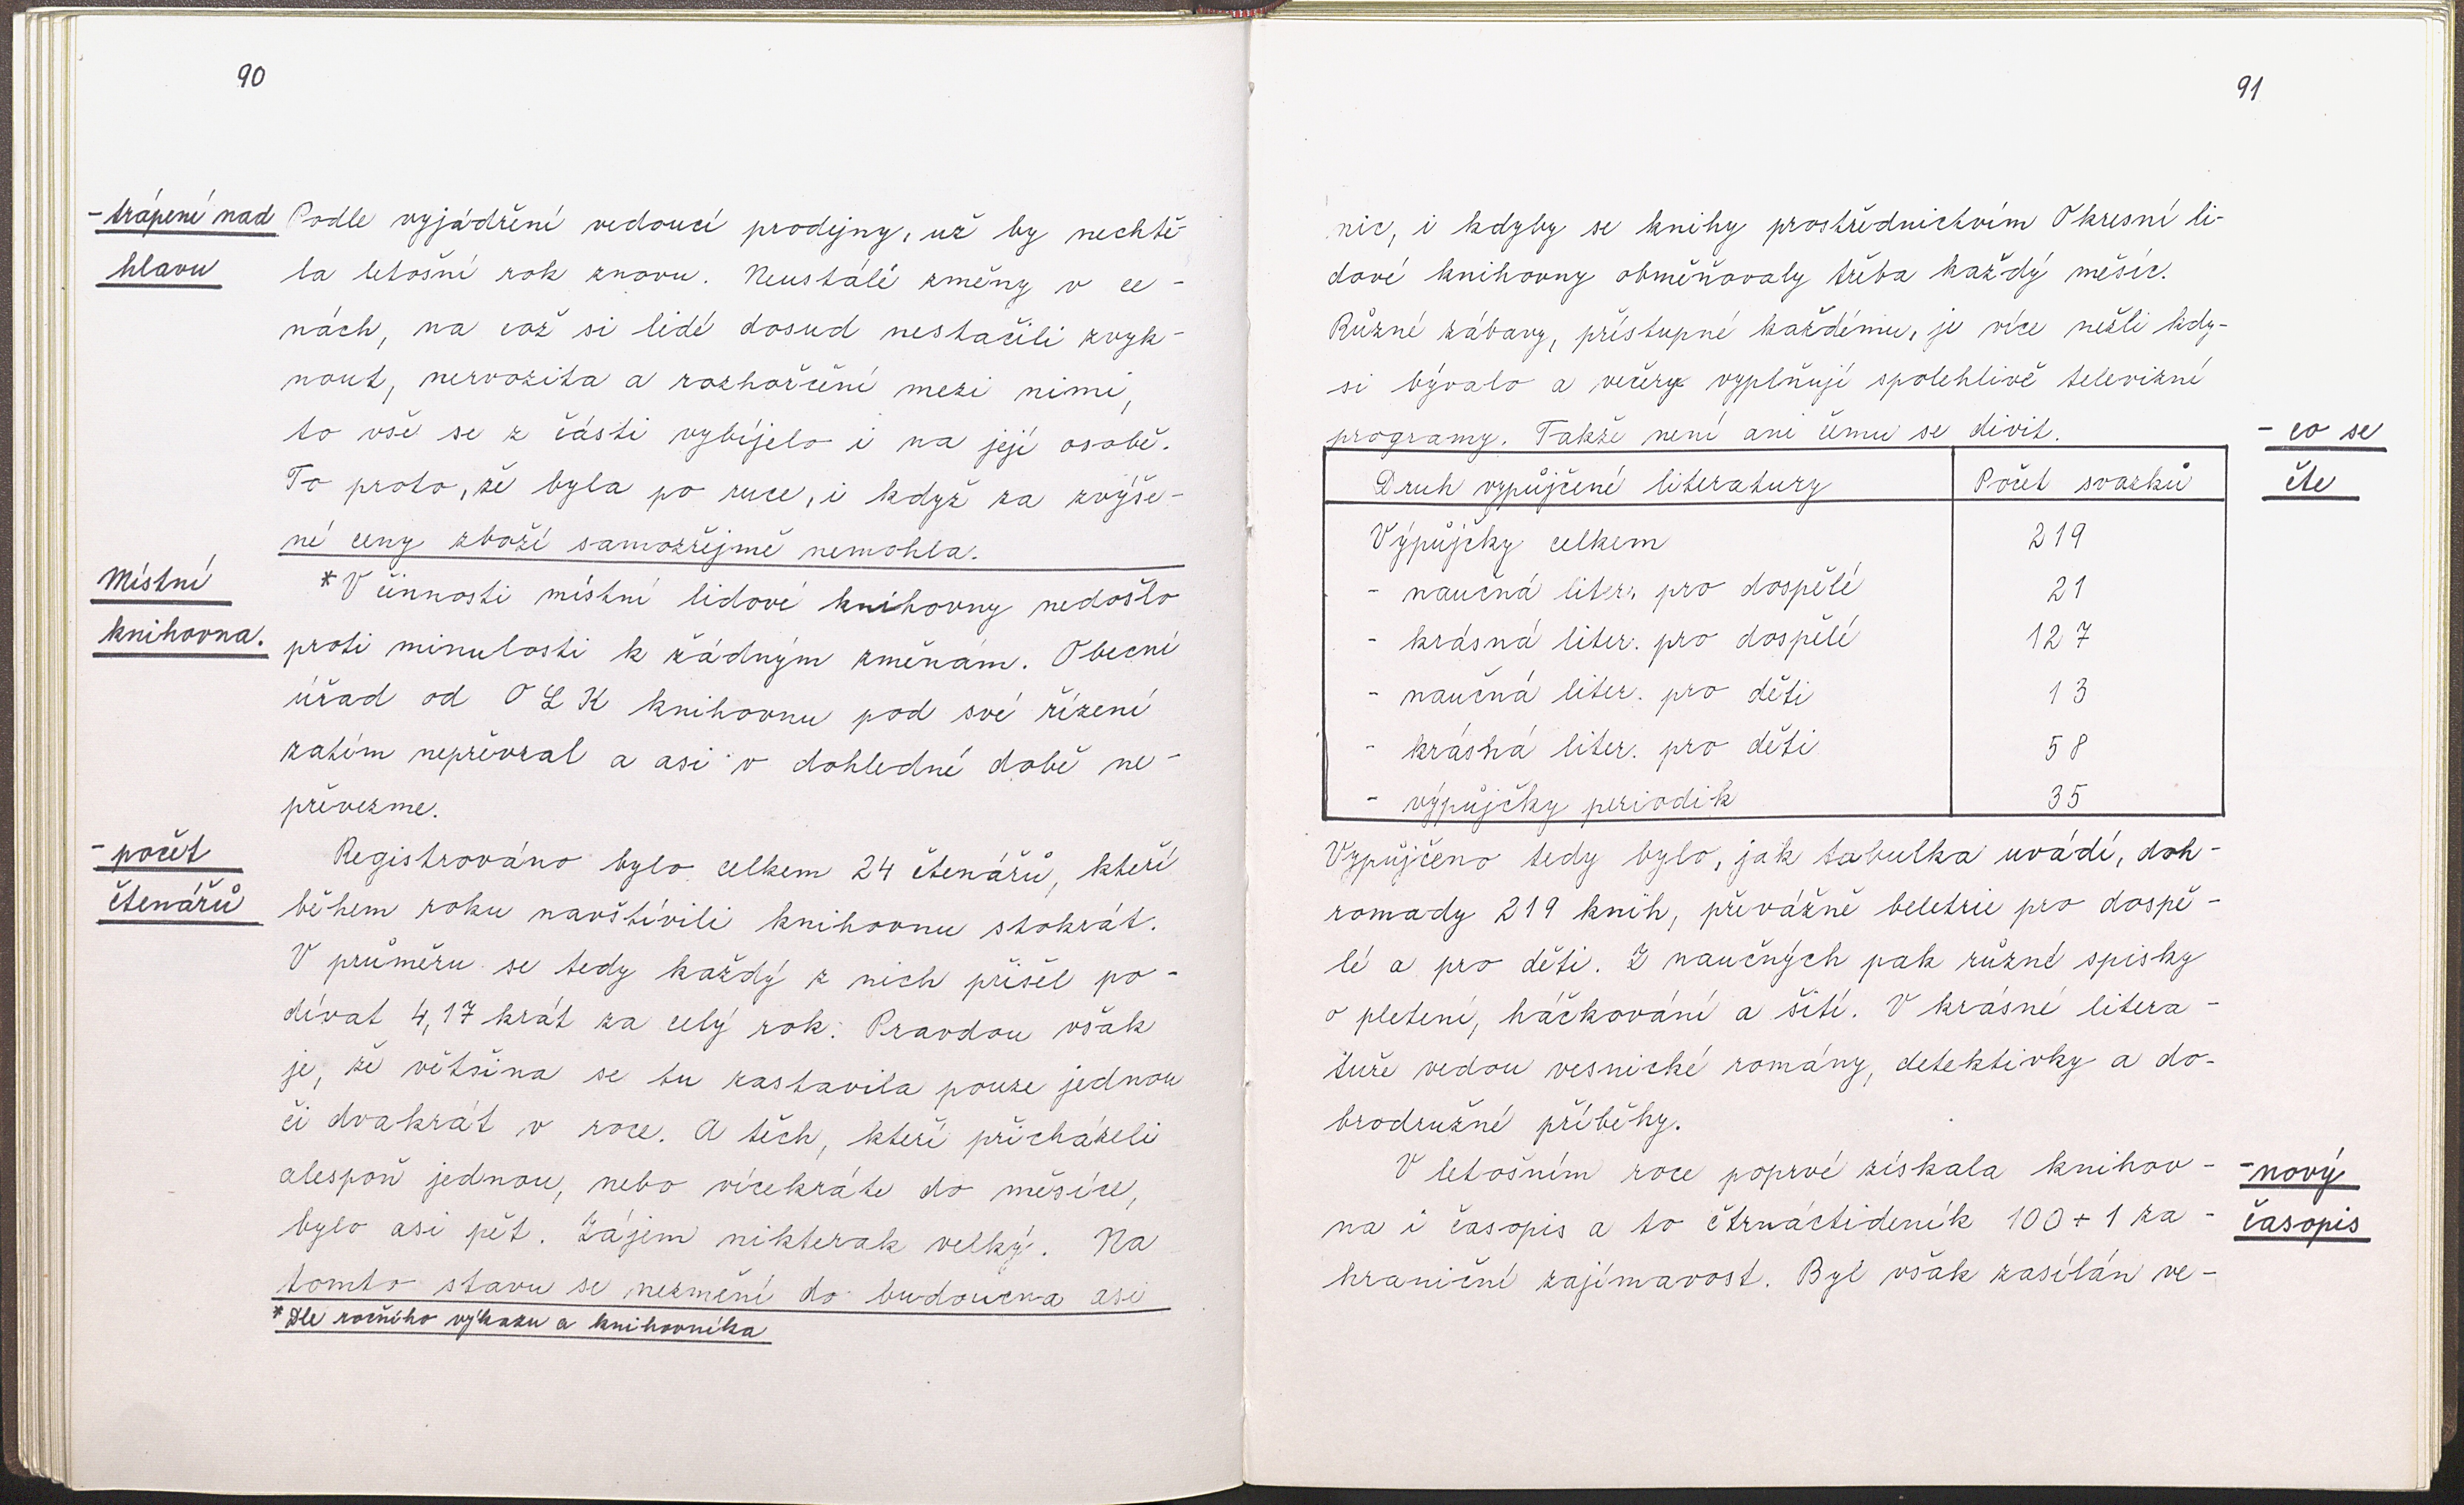 90
- trápení nad
hlavu
Podle vyjádření vedoucí prodejny, už by nechtě-
la letošní rok znovu. Neustálé změny v ce-
nách, na což si lidé dosud nestačili zvyk-
nout, nervozita a rozhořčení mezi nimi,
to vše se z části vybíjelo i na její osobě.
To proto, že byla po ruce, i když za zvýše-
né ceny zboží samozřejmě nemohla.
Místní
knihovna.
* V činnosti místní lidové knihovny nedošlo
proti minulosti k žádným změnám. Obecní
úřad od OLK knihovnu pod své řízení
zatím nepřevzal a asi v dohledné době ne-
převezme.
- počet
čtenářů
Registrováno bylo celkem 24 čtenářů, kteří
během roku navštívili knihovnu stokrát.
V průměru se tedy každý z nich přišel po-
dívat 4,17 krát za celý rok. Pravdou však
je, že většina se tu zastavila pouze jednou
či dvakrát v roce. A těch, kteří přicházeli
alespoň jednou, nebo vícekráte do měsíce,
bylo asi pět. Zájem nikterak velký. Na
tomto stavu se nezmění do budoucna asi
* Dle ročního výkazu a knihovníka
91
nic, i kdyby se knihy prostřednictvím Okresní li-
dové knihovny obměňovaly třeba každý měsíc.
Různé zábavy, přístupné každému, je více nežli kdy-
si bývalo a večery vyplňují spolehlivě televizní
programy. Takže není ani čemu se divit.
- co se
čte
Druh vypůjčené literatury Počet svazků
Výpůjčky celkem 219
- naučná liter. pro dospělé 21
- krásná liter. pro dospělé 127
- naučná liter. pro děti 13
- krásná liter. pro děti 58
- výpůjčky periodik 35
Vypůjčeno tedy bylo, jak tabulka uvádí, doh-
romady 219 knih, převážně beletrie pro dospě-
lé a pro děti. Z naučných pak různé spisky
o pletení, háčkování a šití. V krásné litera-
tuře vedou vesnické romány, detektivky a do-
brodružné příběhy.
V letošním roce poprvé získala knihov-
na i časopis a to čtrnáctideník 100 + 1 za-
hraniční zajímavost. Byl však zasílán ve-
- nový
časopis